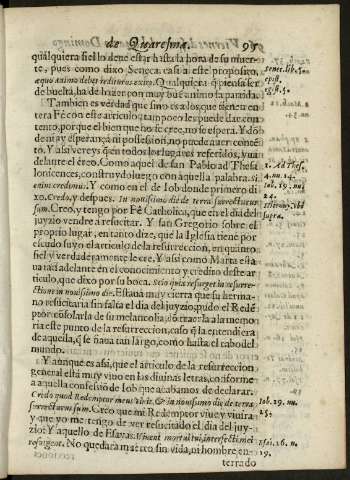 de Quaresma. 95
qualquiera fiel lo deue estar hasta la hora de su muer-
te, pues como dixo Seneca casi a este proposito,
æquo animo debet rediturus exire. Qualquiera q̃ piensa ser
de buelta, ha de hazer con muy buẽ animo la partida.
Tambien es verdad que sino es a los que tienen en
tera Fè con este articulo, tampoco les puede dar con-
tento, porque el bien que no se cree, no se espera. Y dõ
de no ay esperança, ni possession, no puede auer conte-
to. Y assi vereys q̃ en todos los lugares referidos, y ua
delante el creo. Como aquel de san Pablo ad Thesa
lonicences, construydo luego con aquella palabra, si
enim credimus. Y como en el de Iob donde primero di
xo, Credo, y despues, In nouissimo die de terra surrecturus
sum. Creo, y tengo por Fè Catholica, que en el dia del
juyzio vendre a resucitar. Y san Gregorio sobre el
proprio lugar, en tanto dize, que la Iglesia tiene por
escudo suyo el articulo de la resurreccion, en quanto
fiel y verdaderamente le cree. Y assi como Marta esta
ua tan adelante en el conocimiento y credito deste ar
ticulo, que dixo por su boca. Scio quia resurget in resurre-
ctione in nouissimo die. Estaua muy cierta que su herma-
no resucitaria sin falta el dia del juyzio, pudo el Redẽ
ptor cõsolarla de su melancolia, cõ traerla a la memo-
ria este punto de la resurreccion, caso q̃ la entendiera
de aquella, q̃ se fiaua tan largo, como hasta el cabo del
mundo.
Y aunque es assi, que el articulo de la resurreccion
general està muy viuo en las diuinas letras, conforme
a aquella confessiõ de Iob que acabamos de declarar.
Credo quod Redemptor meus viuit, & in nouissimo die de terra
surrecturus sum. Creo que mi Redemptor viue, y viuira
y que yo me tengo de ver resucitado el dia del juy-
zio: Y aquello de Esayas. Viuent mortui tui, interfecti mei
resurgent. No quedarà muerto sin vida, ni hombre en-
terrado
Senec. lib. 5.
epist.
1. Ad Thess.
4. nu. 14.
Iob. 19. nu.
24.
supra.
Iob. 19. nu.
25.
Isai. 26. n.
19.